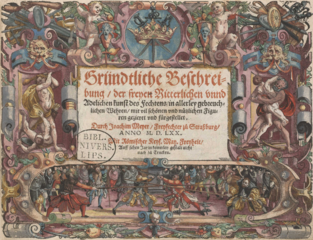 Gründtliche Beschrei-
bung / der freyen Ritterlichen unnd
Adelichen kunst des Fechtens in allerley gebreuch-
lichen Wehren / mit vil schönen und nützlichen Figu-
ren gezieret und fürgestellet.
Durch Joachim Meyer / Freyfechter zu Strassburg /
ANNO M. D. LXX.
Mit Römischer Keys. May. Freyheit /
auch zu Trucken.
BIBL.
NIVERS.
LIPS.